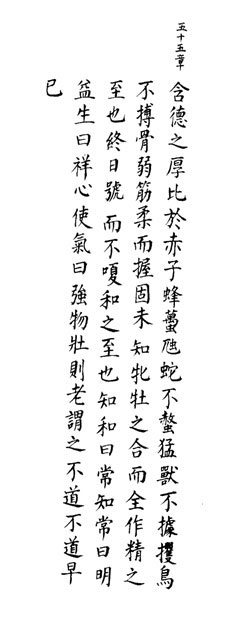 五十五章
含德之厚比於赤子蜂蠆虺蛇不螫猛獸不據攫鳥
不搏骨弱筋柔而握固未知牝牡之合而全作精之
至也終日號而不嗄和之至也知和曰常知常曰明
益生曰祥心使氣曰強物壯則老謂之不道不道早
已